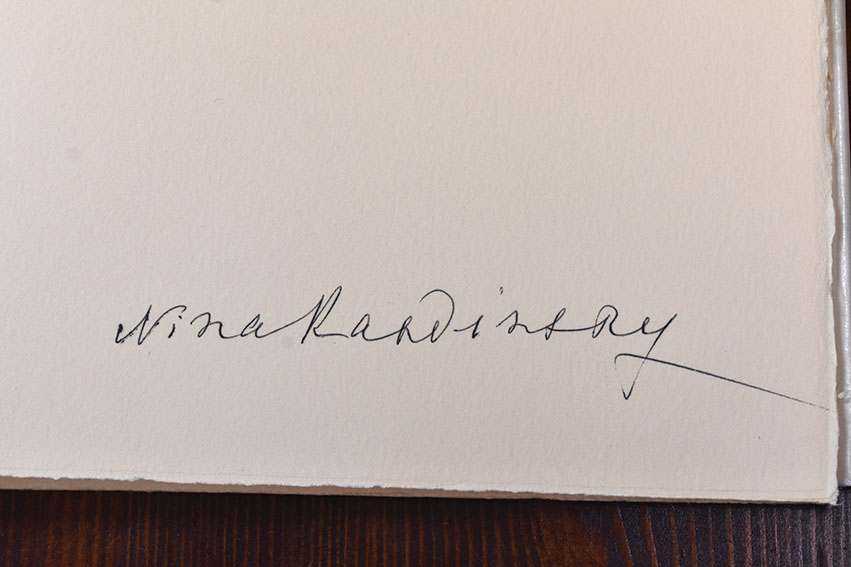 Nina Kandinsky